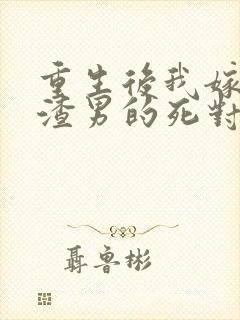 重生後我嫁
渣男的死對
聶魯彬